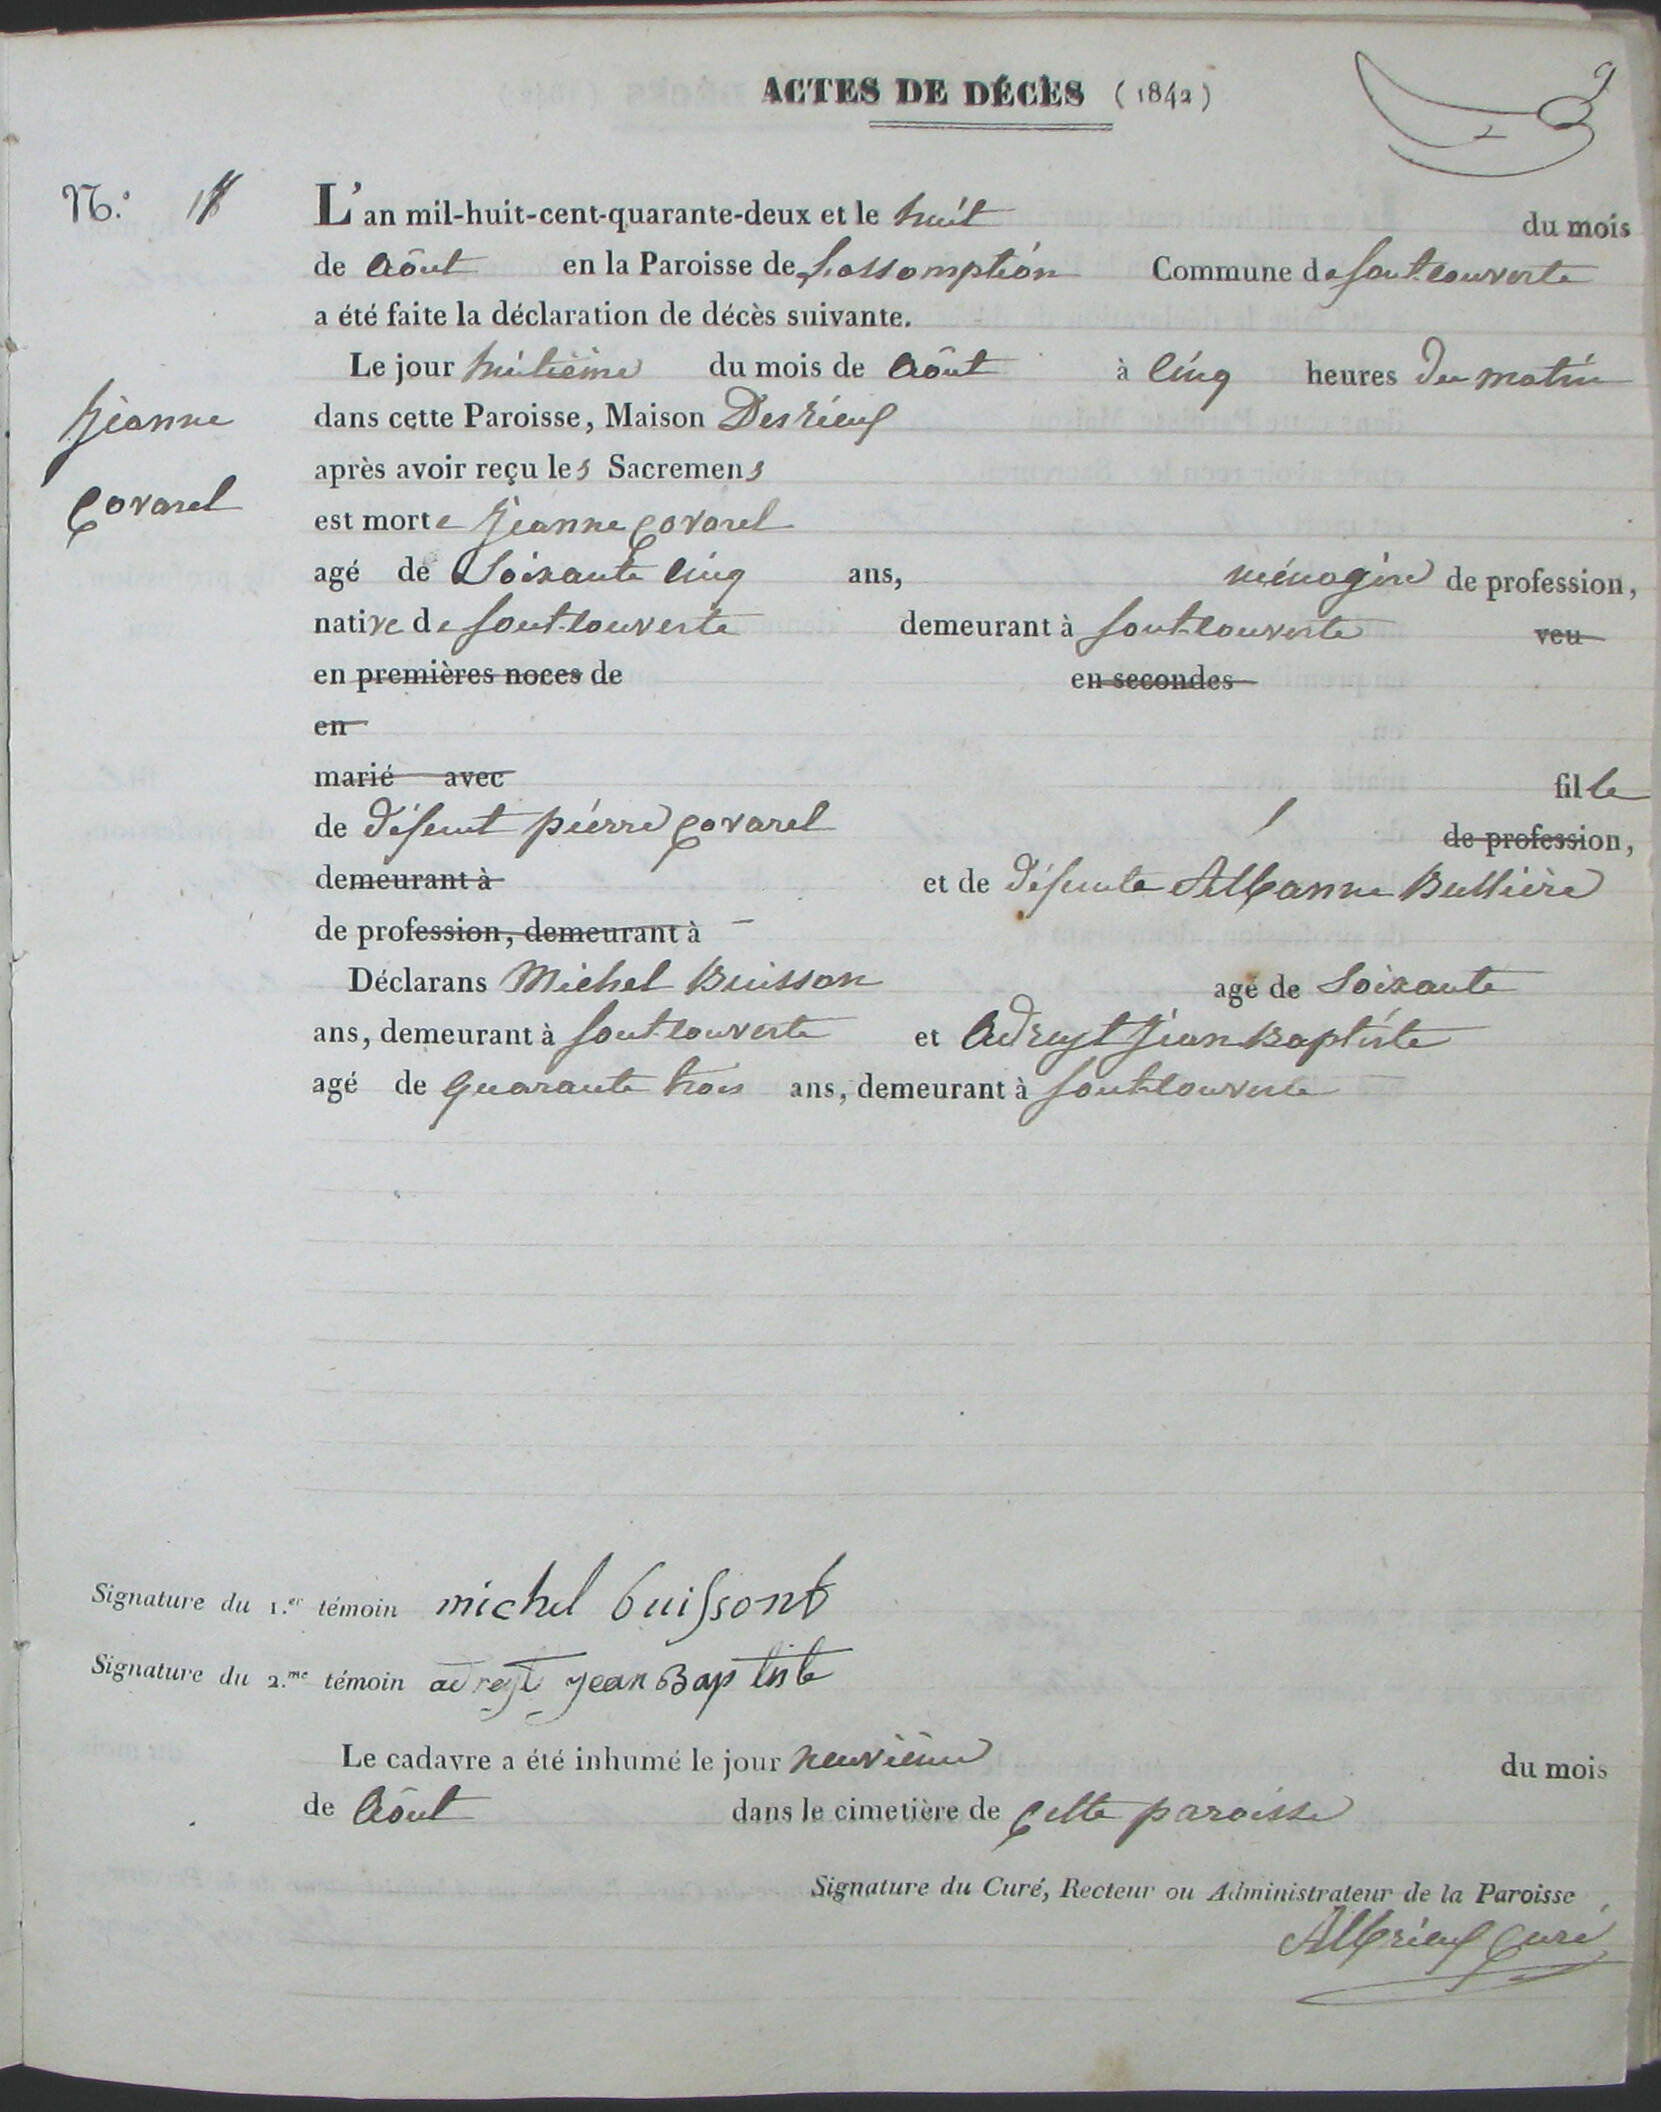 ACTES DE DÉCÈS (1842)
9
N.º
L'an mil-huit-cent-quarante-deux et le huit du mois
de Aôut en la Paroisse de L'assomption Commune de fontcouverte
a été faite la déclaration de décès suivante.
Le jour huitième du mois de Aôut à Cinq heures du matin
Jeanne
Covarel
dans cette Paroisse, Maison Desrieux
après avoir reçu les Sacremens
est morte Jeanne Covarel
agé de Soixante Cinq ans, ménagère de profession,
native de fontcouverte demeurant à fontcouverte veu
en premières noces de en secondes
en
marié avec fille
de défunt pierre Covarel de profession,
demeurant à et de défunte Albanne Bullière
de profession, demeurant à
Déclarans Michel Buisson agé de Soixante
ans, demeurant à fontcouverte et Adreyt Jean Baptiste
agé de Quarante trois ans, demeurant à fontcouverte
Signature du 1.er témoin michel buissont
Signature du 2.me témoin adreyt jean Baptiste
Le cadavre a été inhumé le jour neuvième du mois
de Aôut dans le cimetière de Cette paroisse
Signature du Curé, Recteur ou Administrateur de la Paroisse
Albrieux Curé